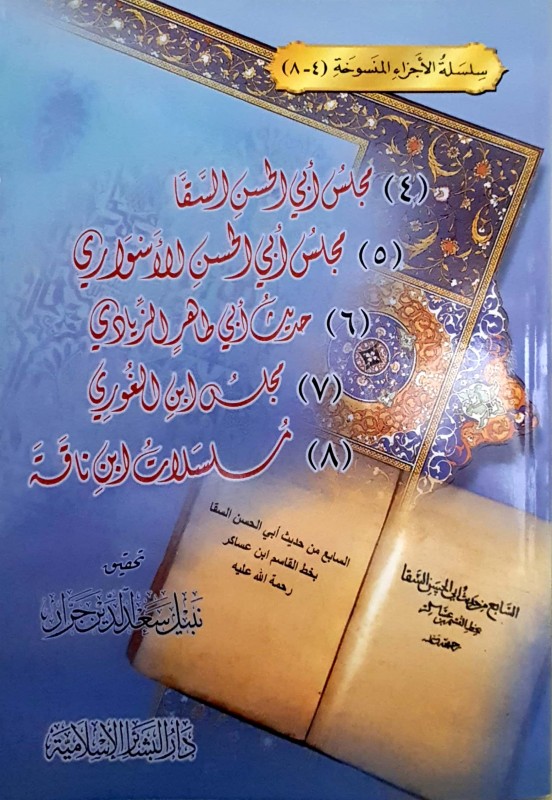 سلسلة الأجزاء المنسوخة (٤-٨)
(٤) مجلس أبي الحسن السقا
(٥) مجلس أبي الحسن الأسواري
(٦) حديث أبي طاهر الزيادي
(٧) مجلس ابن الغوري
(٨) مسلسلات ابن ناقة
السابع من حديث أبي الحسن السقا
بخط القاسم ابن عساكر
رحمة الله عليه
السابع من حديث أبي الحسن السقا
تحقيق
نبيل سعد الدين جرار
دار البشائر الإسلامية